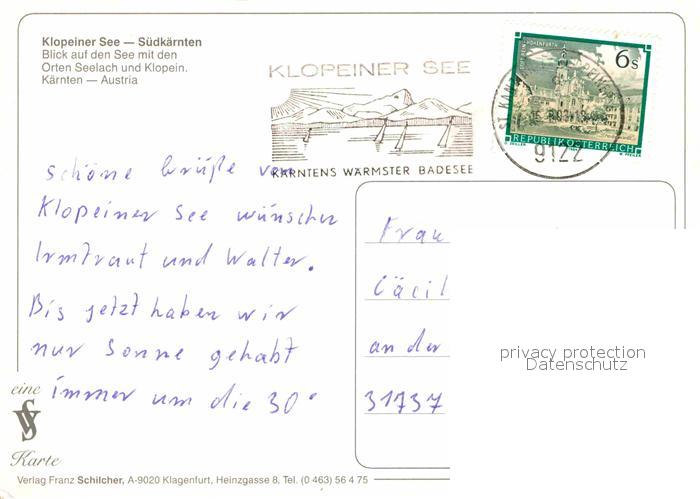 Klopeiner See — Südkärnten
Blick auf den See mit den
Orten Seelach und Klopein.
Kärnten — Austria
KLOPEINER SEE
KÄRNTENS WÄRMSTER BADESEE
6s
REPUBLIK ÖSTERREICH
9122
schöne Grüße vom
Klopeiner See wünschen
Irmtraut und Walter.
Bis jetzt haben wir
nur Sonne gehabt
immer um die 30°
Frau
Cäcil
an der
31737
privacy protection
Datenschutz
eine
Karte
Verlag Franz Schilcher, A-9020 Klagenfurt, Heinzgasse 8, Tel. (0 463) 56 4 75